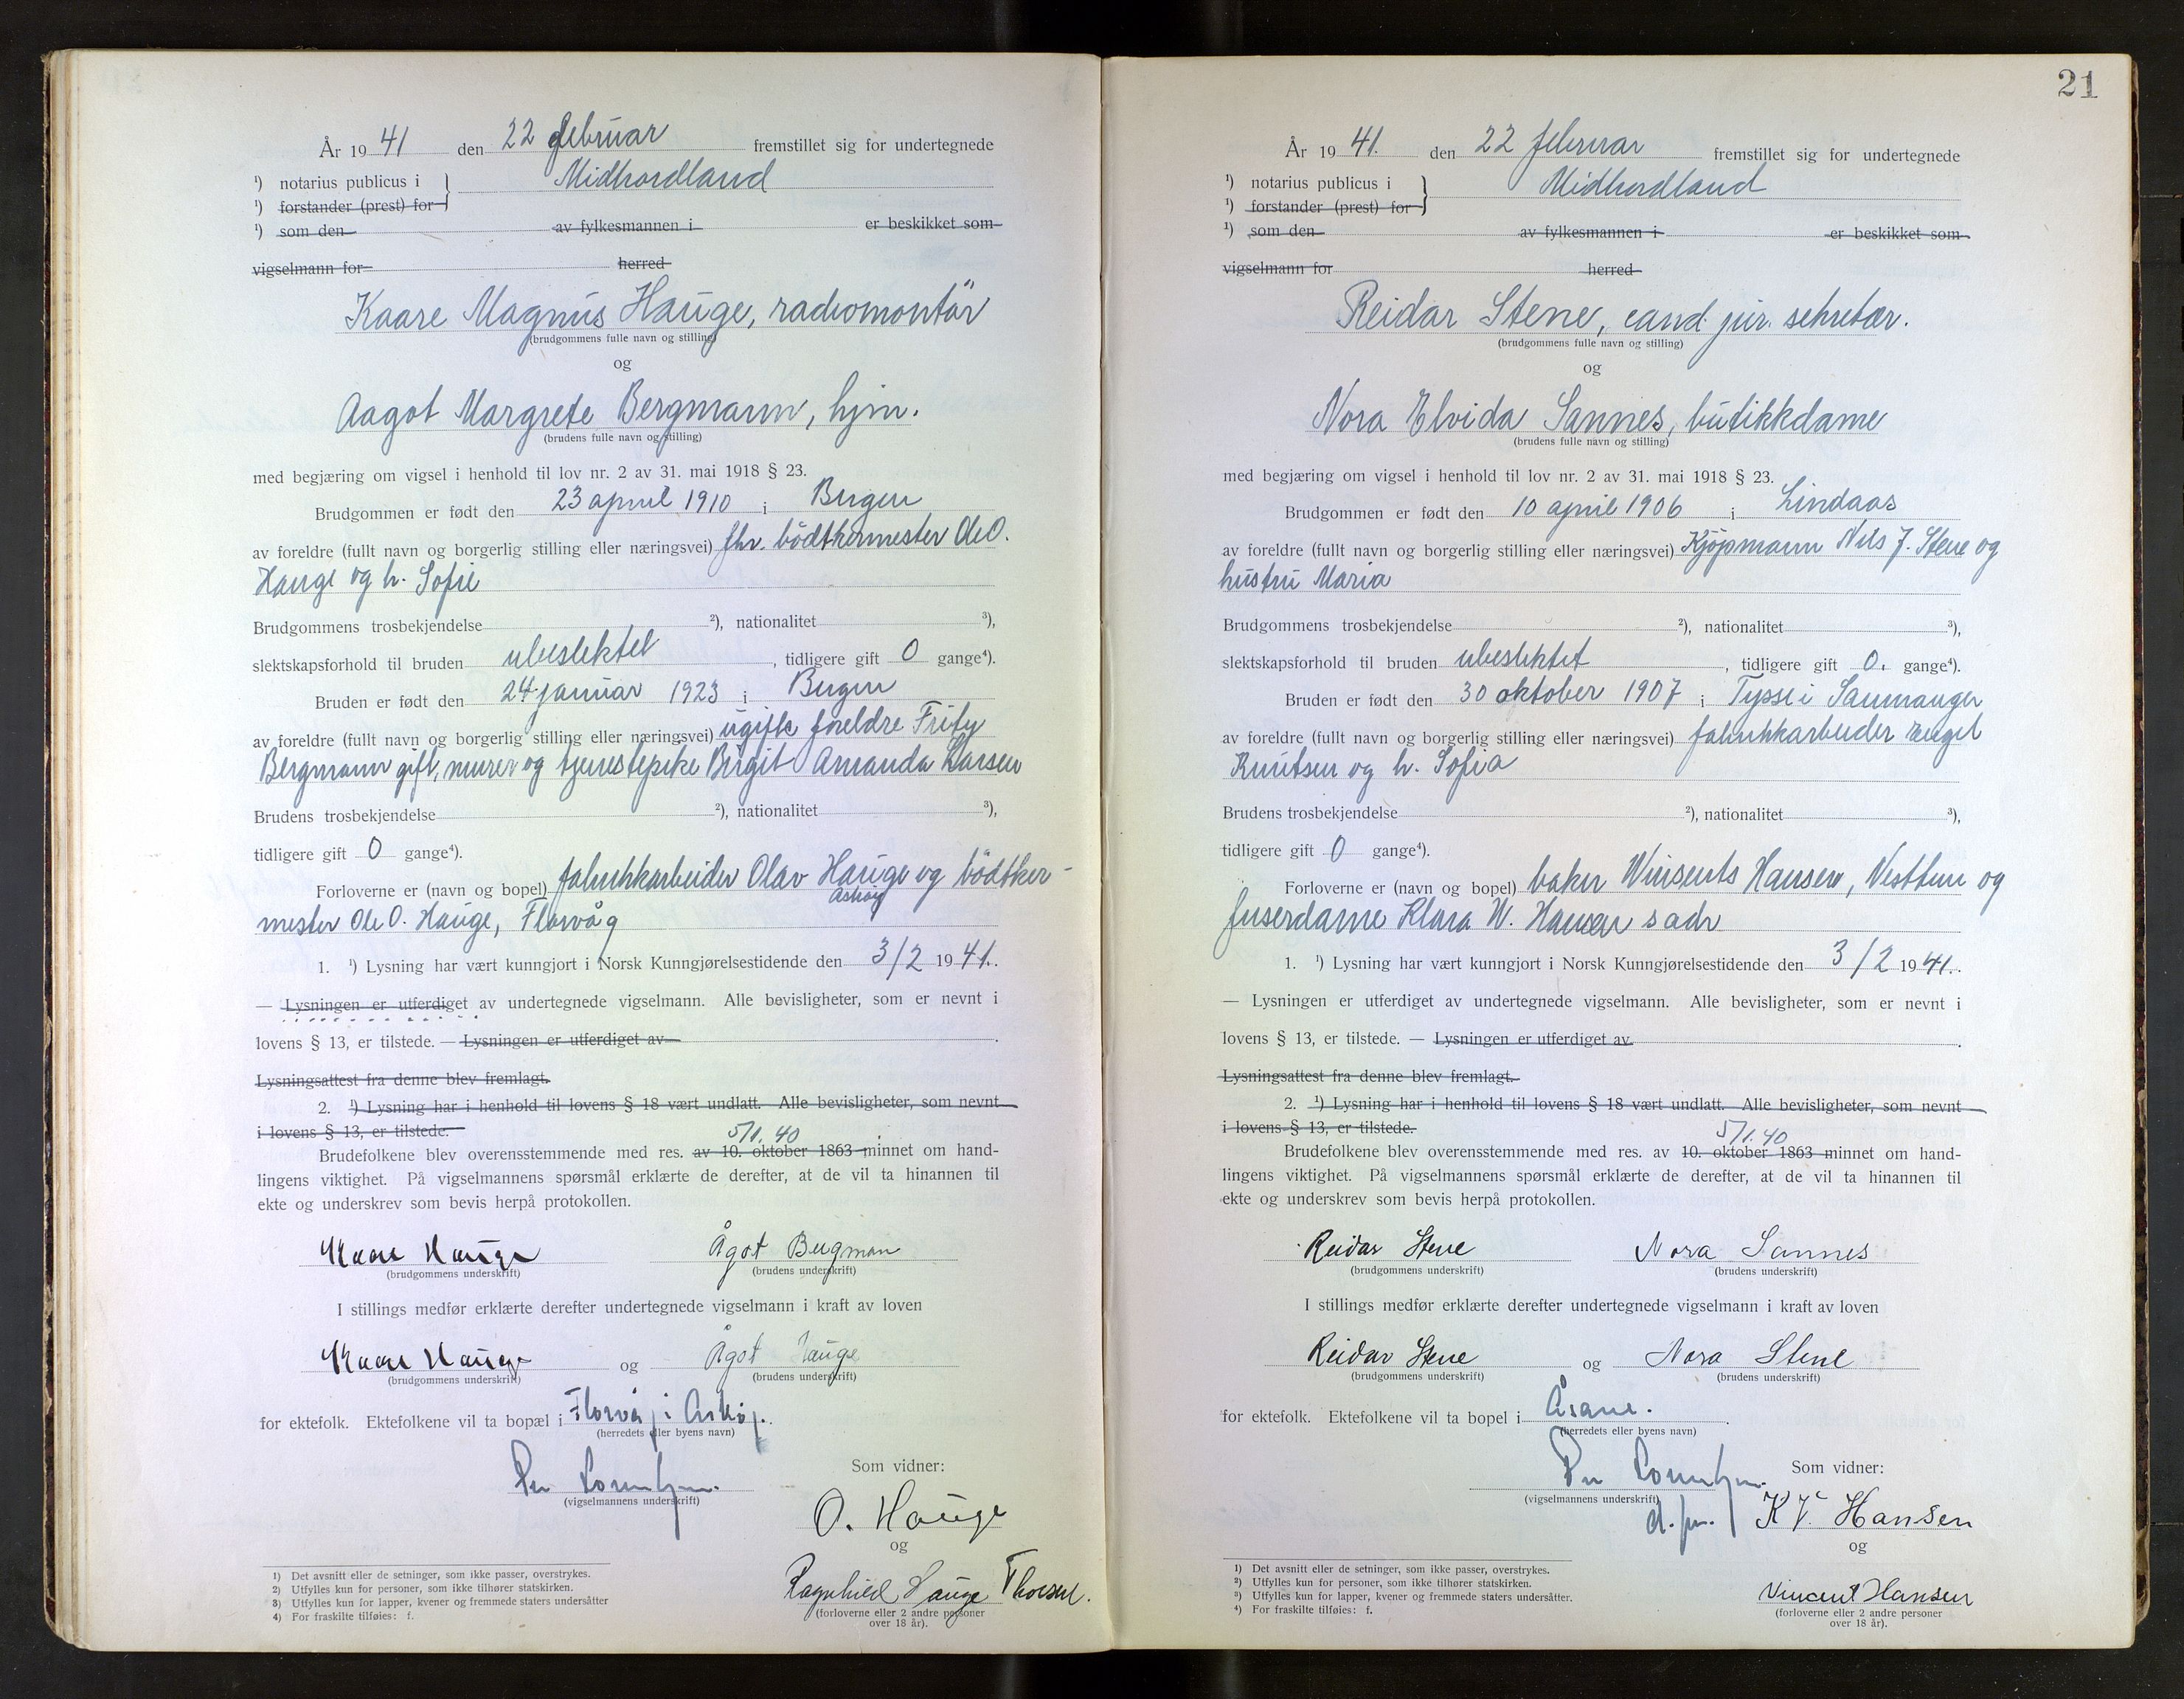 År 1941 den 22 februar fremstillet sig for undertegnede
¹) notarius publicus i } Midhordland
¹) forstander (prest) for
¹) som den av fylkesmannen i er beskikket som
vigselmann for herred
Kaare Magnus Hauge, radiomontör
(brudgommens fulle navn og stilling)
og
Aagot Margrete Bergmann, hjm.
(brudens fulle navn og stilling)
med begjæring om vigsel i henhold til lov nr. 2 av 31. mai 1918 § 23.
Brudgommen er født den 23 april 1910 i Bergen
av foreldre (fullt navn og borgerlig stilling eller næringsvei) fhv. bödtkermester Ole O.
Hauge og h. Sofie
Brudgommens trosbekjendelse ²), nationalitet ³),
slektskapsforhold til bruden ubeslektet, tidligere gift 0 gange⁴).
Bruden er født den 24 januar 1923 i Bergen
av foreldre (fullt navn og borgerlig stilling eller næringsvei) ugifte foreldre
Bergmann gift, murer og tjenestepike Birgit Amanda Larsen
Brudens trosbekjendelse ²), nationalitet ³),
tidligere gift 0 gange⁴).
Forloverne er (navn og bopel) fabrikkarbeider Olav Hauge og bödtker-
Askøy
mester Ole O. Hauge, Florvåg
1. ¹) Lysning har vært kunngjort i Norsk Kunngjørelsestidende den 3/2 1941.
— Lysningen er utferdiget av undertegnede vigselmann. Alle bevisligheter, som er nevnt i
lovens § 13, er tilstede. — Lysningen er utferdiget av
Lysningsattest fra denne blev fremlagt.
2. ¹) Lysning har i henhold til lovens § 18 vært undlatt. Alle bevisligheter, som nevnt
i lovens § 13, er tilstede.
5/1. 40
Brudefolkene blev overensstemmende med res. av 10. oktober 1863 minnet om hand-
lingens viktighet. På vigselmannens spørsmål erklærte de derefter, at de vil ta hinannen til
ekte og underskrev som bevis herpå protokollen.
Kaare Hauge Ågot Bergman
(brudgommens underskrift) (brudens underskrift)
I stillings medfør erklærte derefter undertegnede vigselmann i kraft av loven
Kaare Hauge og Ågot Hauge
(brudgommens underskrift) (brudens underskrift)
for ektefolk. Ektefolkene vil ta bopæl i Florvåg i Askøy.
(herredets eller byens navn)
Per
(vigselmannens underskrift)
Som vidner:
O. Hauge
og
Ragnhild Hauge Thorsen.
(forloverne eller 2 andre personer
over 18 år).
1) Det avsnitt eller de setninger, som ikke passer, overstrykes.
2) Utfylles kun for personer, som ikke tilhører statskirken.
3) Utfylles kun for lapper, kvener og fremmede staters undersåtter
4) For fraskilte tilføies: f.
21
År 1941. den 22 februar fremstillet sig for undertegnede
¹) notarius publicus i } Midhordland
¹) forstander (prest) for
¹) som den av fylkesmannen i er beskikket som
vigselmann for herred
Reidar Stene, cand. jur. sekretær.
(brudgommens fulle navn og stilling)
og
Nora Elvida Sannes, butikkdame
(brudens fulle navn og stilling)
med begjæring om vigsel i henhold til lov nr. 2 av 31. mai 1918 § 23.
Brudgommen er født den 10 april 1906 i Lindaas
av foreldre (fullt navn og borgerlig stilling eller næringsvei) Kjøpmann Nils J. Stene og
hustru Maria
Brudgommens trosbekjendelse ²), nationalitet ³),
slektskapsforhold til bruden ubeslektet, tidligere gift 0. gange⁴).
Bruden er født den 30 oktober 1907 i Tysse i Samnanger
av foreldre (fullt navn og borgerlig stilling eller næringsvei) fabrikkarbeider Engel
Knutsen og h. Sofia
Brudens trosbekjendelse ²), nationalitet ³),
tidligere gift 0 gange⁴).
Forloverne er (navn og bopel) baker Winsents Hansen, Nesttun og
friserdame Klara W. Hansen s adr
1. ¹) Lysning har vært kunngjort i Norsk Kunngjørelsestidende den 3/2 1941.
— Lysningen er utferdiget av undertegnede vigselmann. Alle bevisligheter, som er nevnt i
lovens § 13, er tilstede. — Lysningen er utferdiget av
Lysningsattest fra denne blev fremlagt.
2. ¹) Lysning har i henhold til lovens § 18 vært undlatt. Alle bevisligheter, som nevnt
i lovens § 13, er tilstede.
5/1. 40
Brudefolkene blev overensstemmende med res. av 10. oktober 1863 minnet om hand-
lingens viktighet. På vigselmannens spørsmål erklærte de derefter, at de vil ta hinannen til
ekte og underskrev som bevis herpå protokollen.
Reidar Stene Nora Sannes
(brudgommens underskrift) (brudens underskrift)
I stillings medfør erklærte derefter undertegnede vigselmann i kraft av loven
Reidar Stene og Nora Stene
(brudgommens underskrift) (brudens underskrift)
for ektefolk. Ektefolkene vil ta bopel i Åsane.
(herredets eller byens navn)
Per
(vigselmannens underskrift)
Som vidner:
K V. Hansen
og
Vincent Hansen
(forloverne eller 2 andre personer
over 18 år).
¹) Det avsnitt eller de setninger, som ikke passer, overstrykes.
²) Utfylles kun for personer, som ikke tilhører statskirken.
³) Utfylles kun for lapper, kvener og fremmede staters undersåtter.
⁴) For fraskilte tilføies: f.